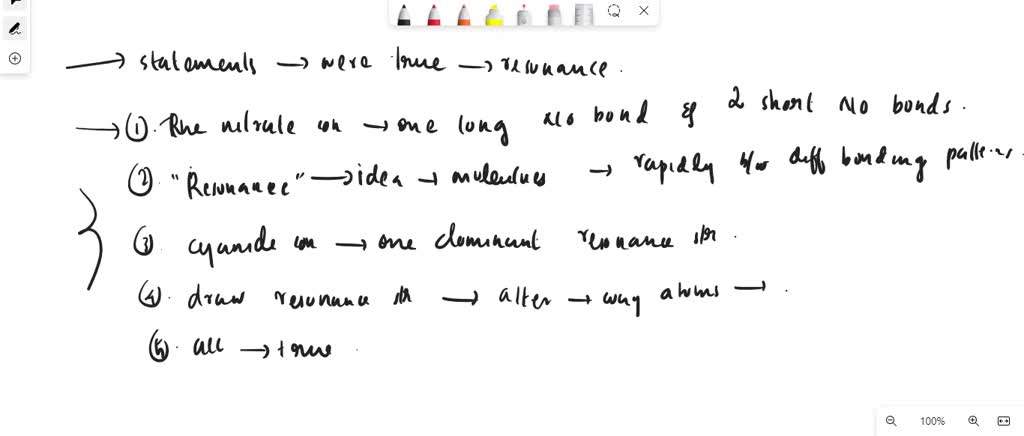 → statements → were true → resonance.
→ ①. The nitrate ion → one long No bond & 2 short No bonds.
② "Resonance" → idea → molecules → rapidly b/w diff bonding patterns.
③ cyanide ion → one dominant resonance str.
④. draw resonance str → alter → way atoms → .
⑤. all → true.
100%